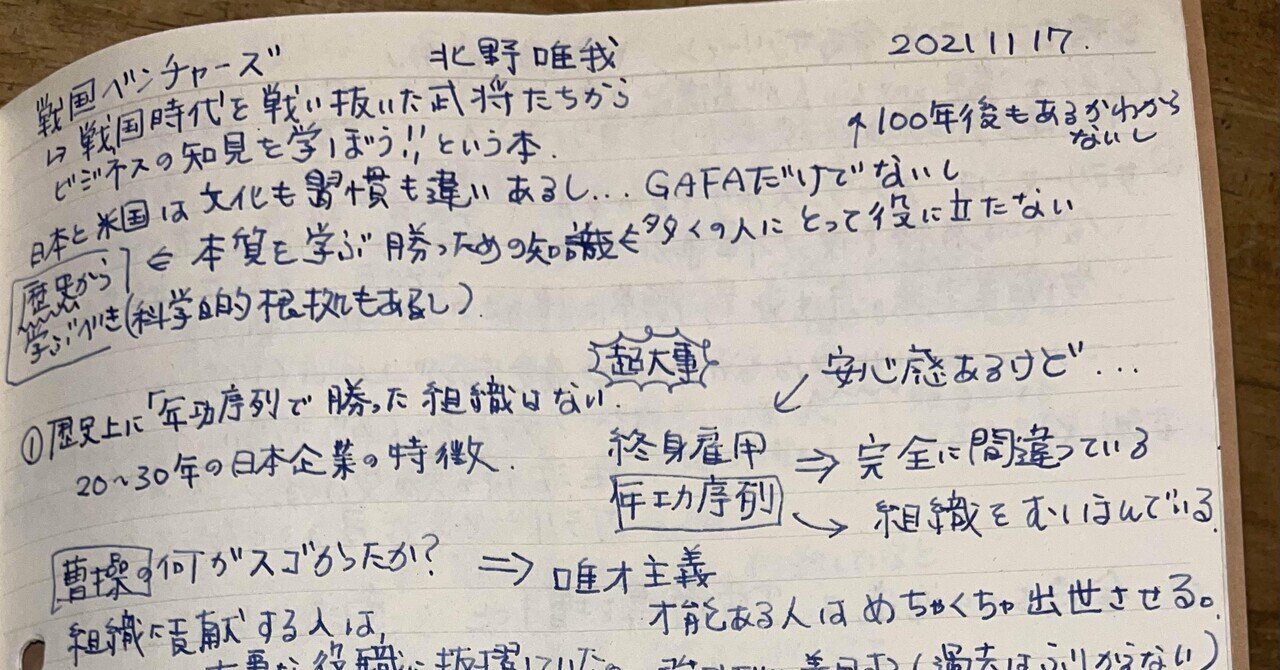 戦国ベンチャーズ 北野唯我 2021 11 17.
↳ 戦国時代を戦い抜いた武将たちから
ビジネスの知見を学ぼう!!という本.
↑100年後もあるかわから
ないし
日本と米国は文化も習慣も違いあるし... GAFAだけでないし
歴史から ⇐ 本質を学ぶ 勝つための知識 ⇐ 多くの人にとって役に立たない
学ぶべき(科学的根拠もあるし)
超大事
①歴史上に「年功序列で勝った組織はない. 安心感あるけど...
20~30年の日本企業の特徴. 終身雇用 ⇒ 完全に間違っている
年功序列 組織をむしばんでいる.
曹操の何がスゴかったか? ⇒ 唯才主義
才能ある人はめちゃくちゃ出世させる。
組織に貢献する人は,
役職に抜擢していた。 (過去はふりからない)